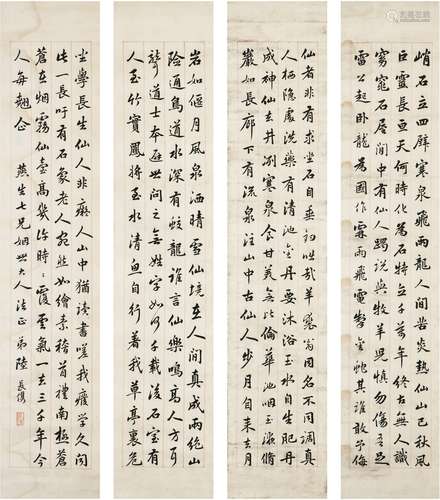 峭石立四壁寒泉飛百尺人間苦炎熱仙山已秋風
巨靈長亘天何時化為石特立千萬年終古無人識
穹窿石屋間中有仙人躅說與牧羊兒慎勿傷吾足
雷公起卧龍為國作霖雨飛電掣金蛇其誰敢予侮
仙者非有求坐石自垂釣哉羊裘翁因名不同調
人棲隱處洗藥有清池金丹要沐浴玉水自生肥丹
成神仙去井冽寒泉食甘美無比倫華池咽玉液脩
巖如長廊下有流泉注山中古仙人步月自來去月
岩如偃月風泉洒晴雪仙境在人間真成兩絶山
險通鳥道水深有蛟龍誰言仙樂鳴高人方耳
聾道士本避世問之無姓字如何千載後石室有
人至竹實鳳將至水清魚自行著我草亭裏危
坐學長生仙人非癡人山中猶讀書嗟我廢學久聞
此一長吁有石象老人宛然如繪素稽首禮南極蒼
蒼在烟霧仙臺高幾許時々覆雲氣一去三千年令
人每翹企 燕生七兄姻世大人法正 弟陸長儁